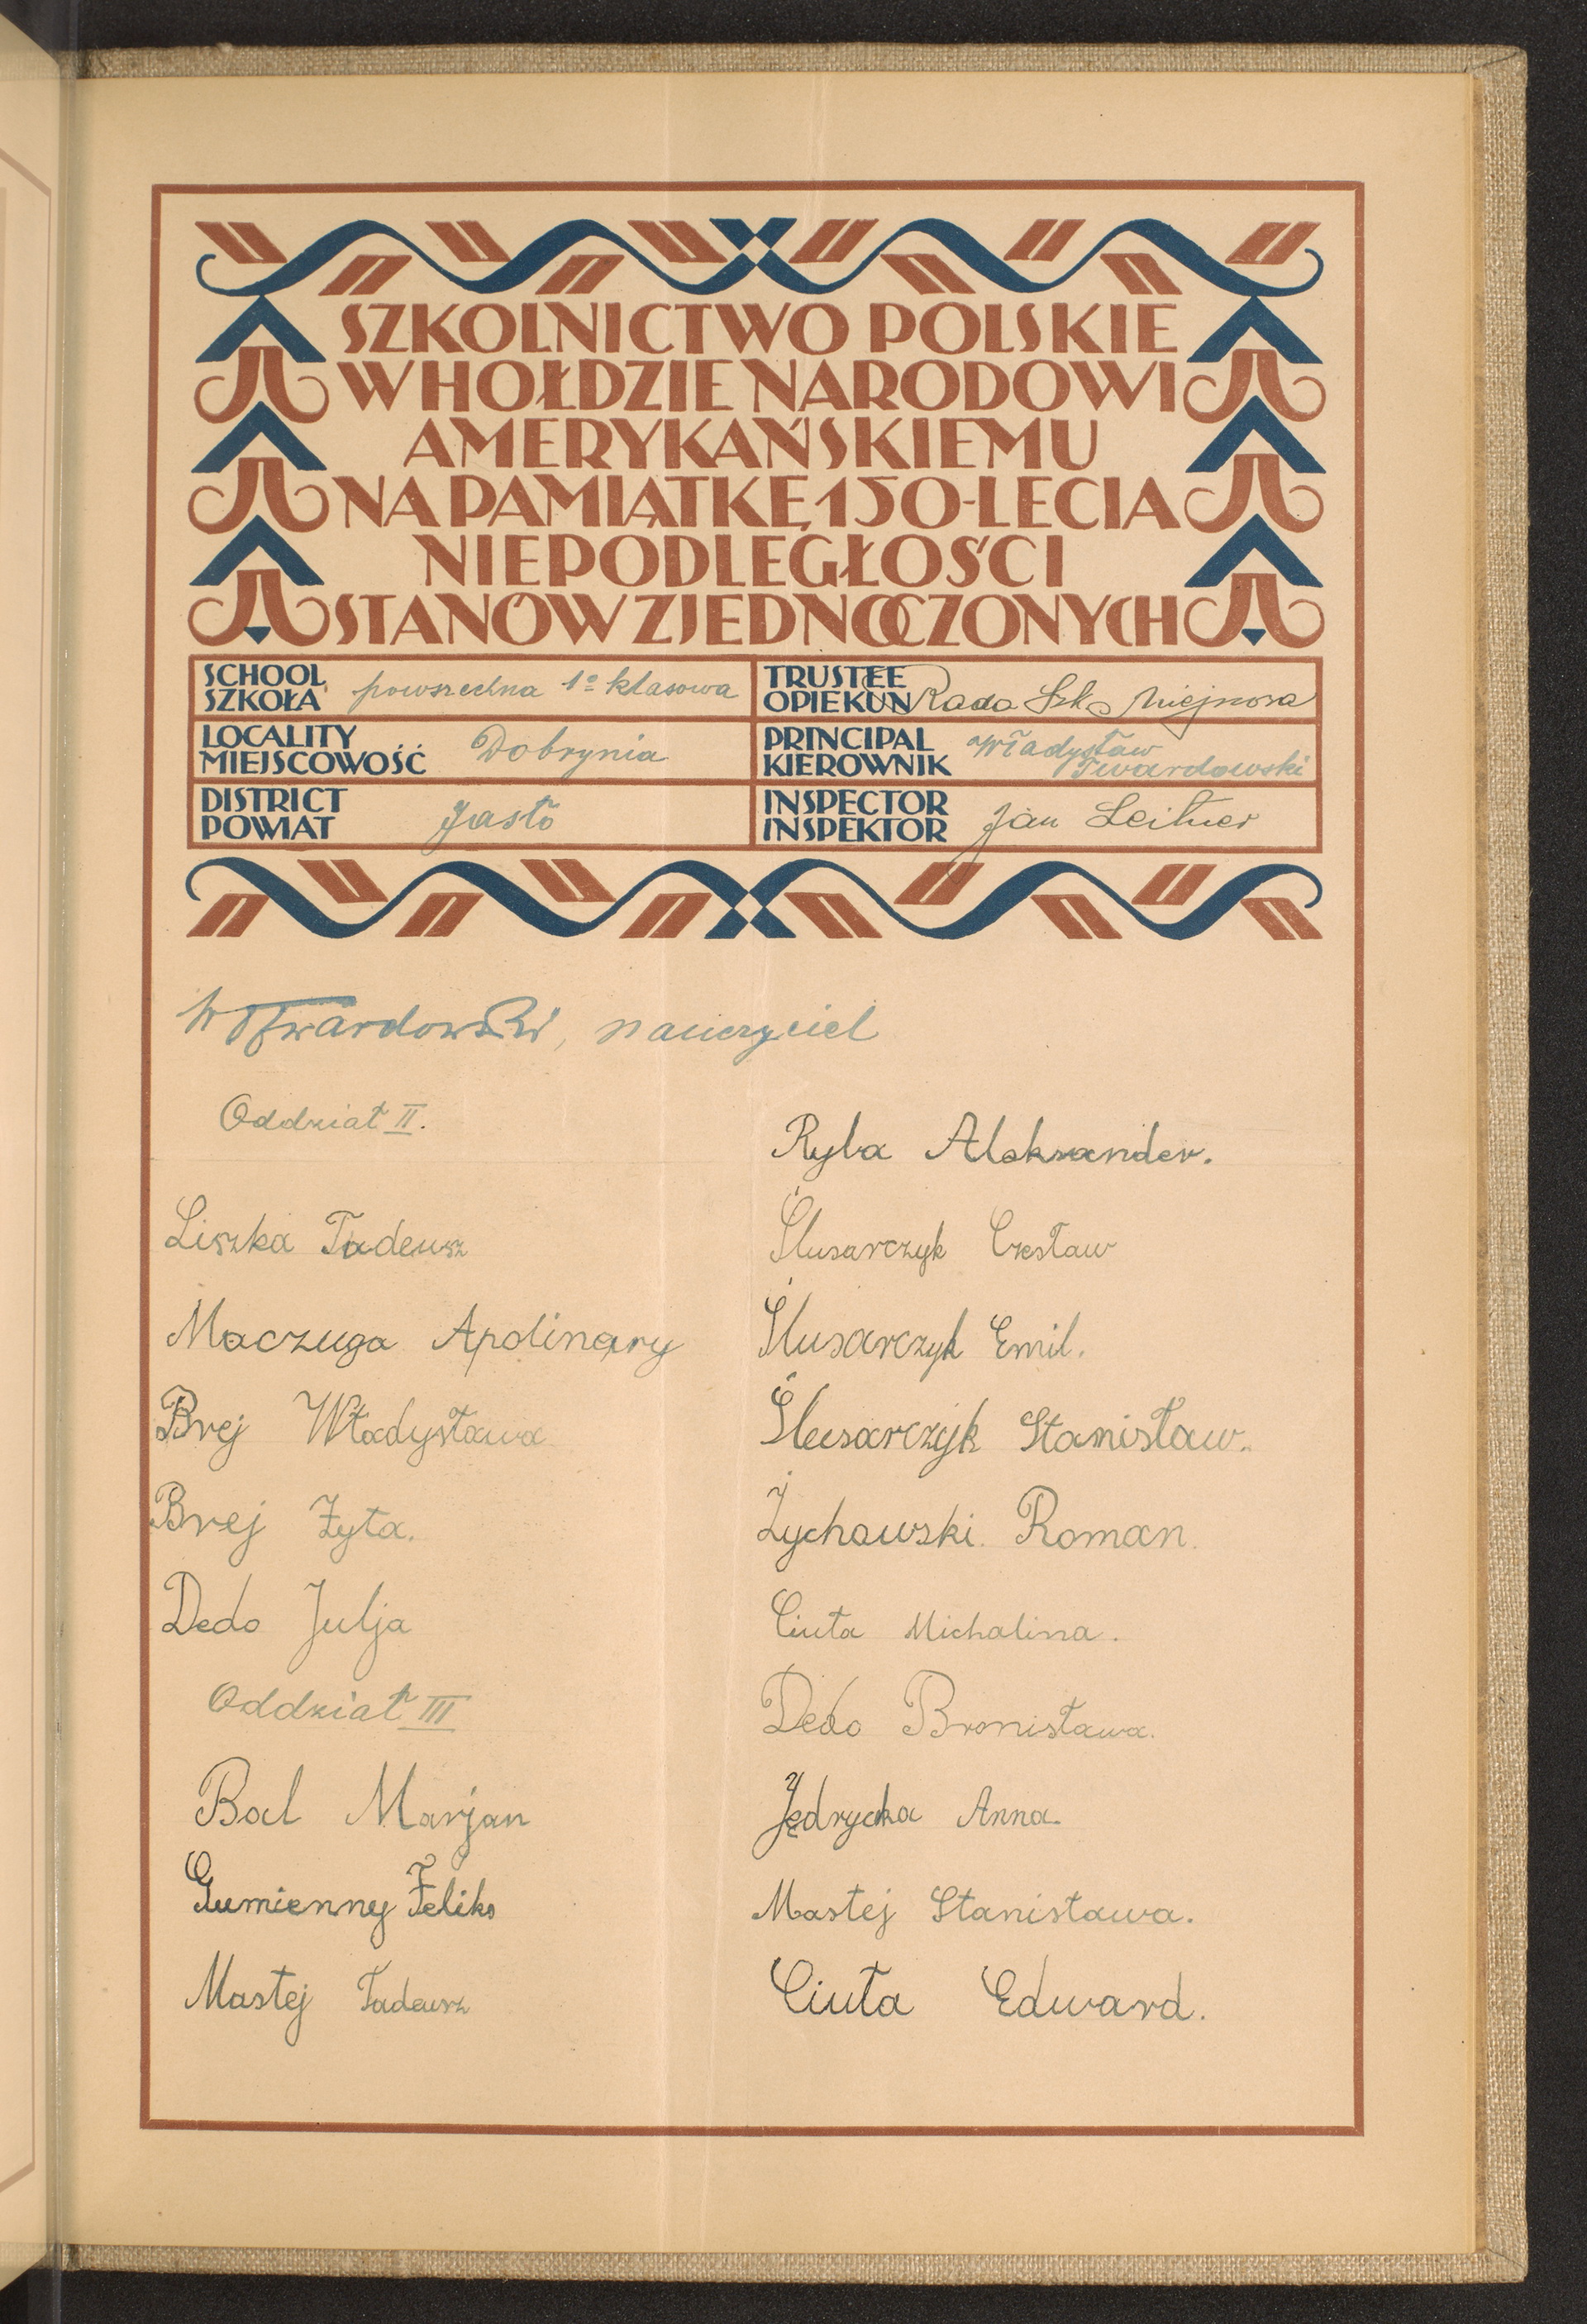 SZKOLNICTWO POLSKIE
W HOŁDZIE NARODOWI
AMERYKAŃSKIEMU
NA PAMIĄTKĘ 150-LECIA
NIEPODLEGŁOŚCI
STANÓW ZJEDNOCZONYCH
SCHOOL
SZKOŁA
powszechna 1º klasowa
TRUSTEE
OPIEKUN
Rada Szk. Miejscowa
LOCALITY
MIEJSCOWOŚĆ
Dobrynia
PRINCIPAL
KIEROWNIK
Władysław
Twardowski
DISTRICT
POWIAT
Jasło
INSPECTOR
INSPEKTOR
Jan Leitner
W Twardowski, nauczyciel
Oddział II.
Liszka Tadeusz
Maczuga Apolinary
Brej Władysława
Brej Zyta.
Dedo Julja
Oddział III
Bal Marjan
Gumienny Feliks
Mastej Tadeusz
Ryba Aleksander.
Ślusarczyk Czesław
Ślusarczyk Emil.
Ślusarczyk Stanisław.
Żychowski. Roman.
Ciuta Michalina.
Dedo Bronisława.
Jędrycka Anna.
Mastej Stanisława.
Ciuta Edward.